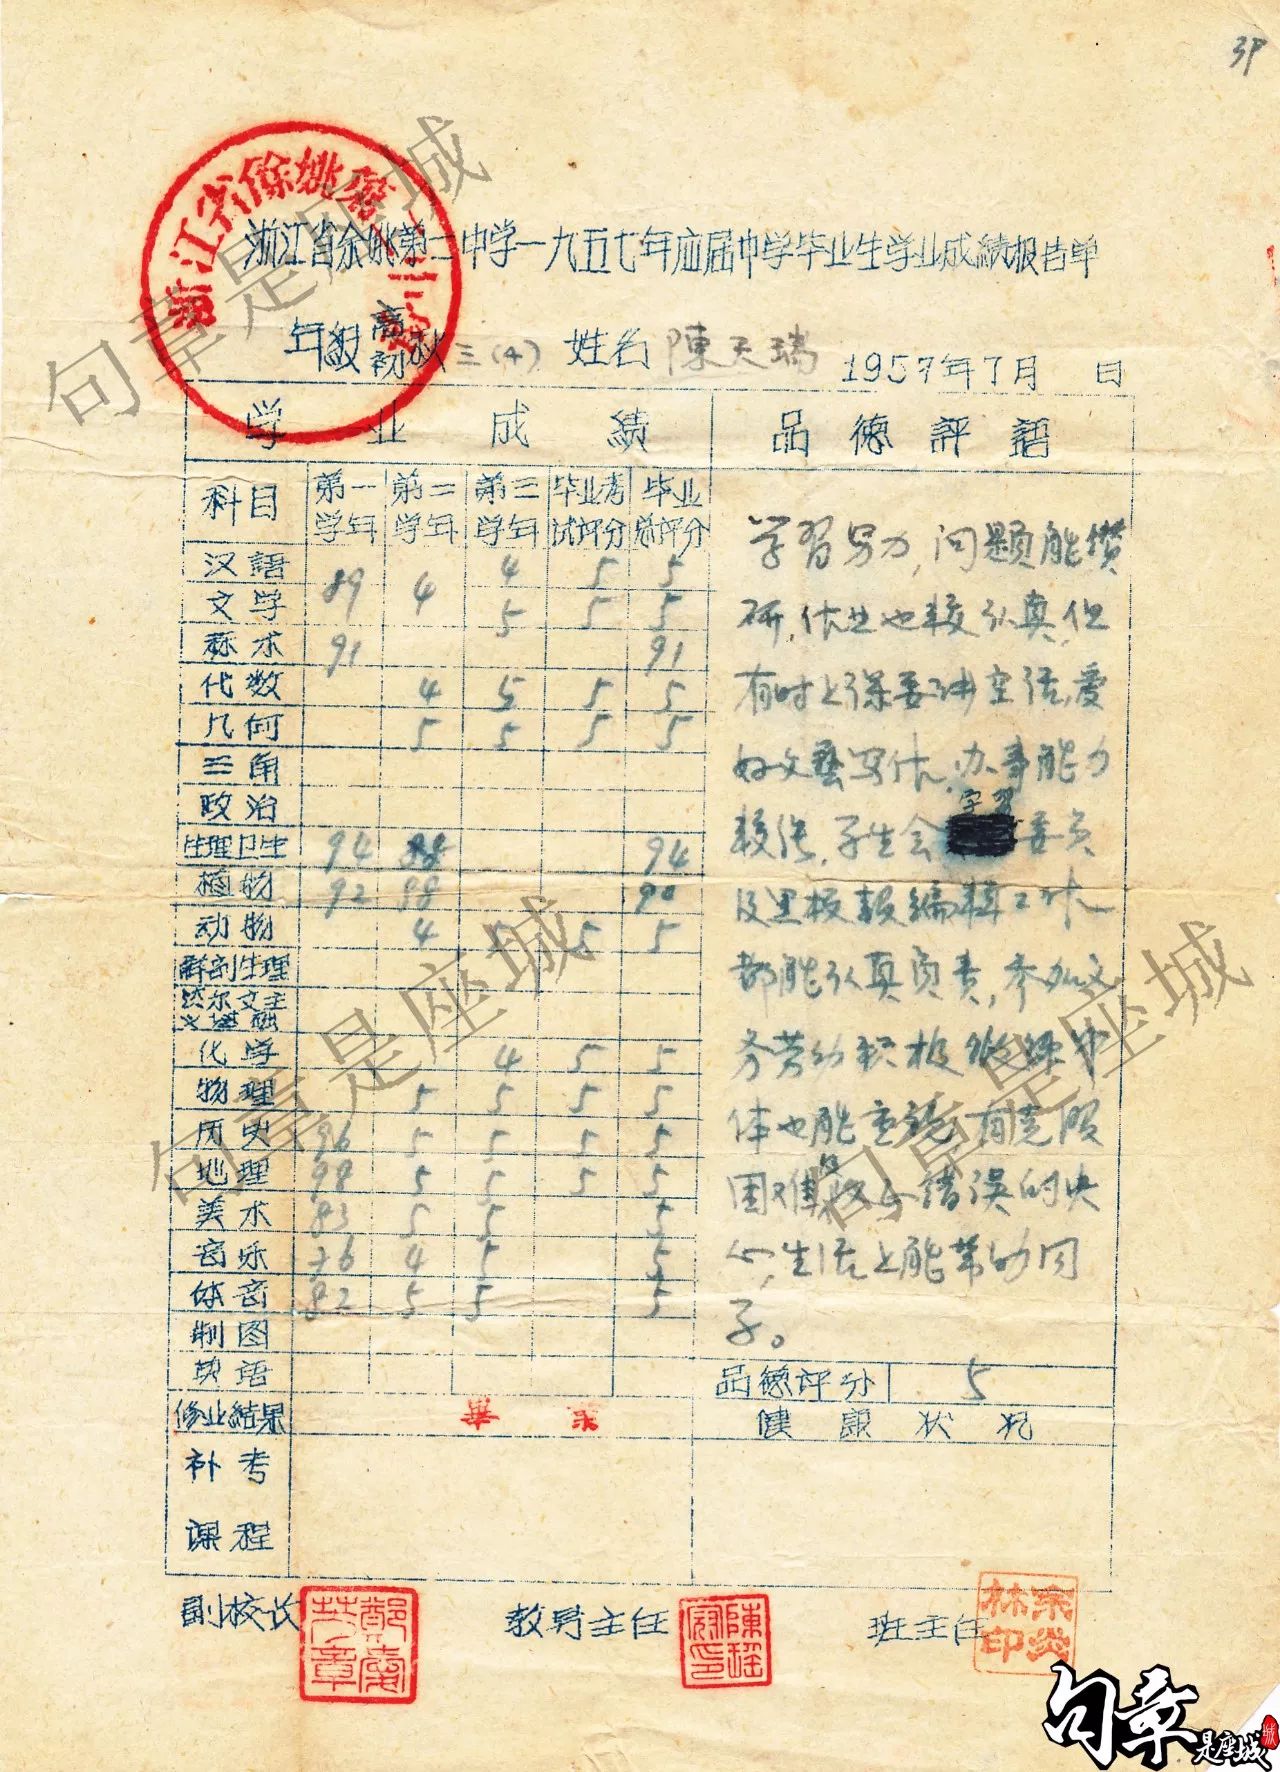 38
浙江省余姚第二中学一九五七年应届中学毕业生学业成績报告单
年級 高初 秋三(4) 姓名 陳天瑞 1957年7月 日
学业成績 品德評語
科目 第一学年 第二学年 第三学年 毕业考試評分 毕业总評分
汉語 89 4 4 5 5
文学 5 5 5
算术 91 91
代数 4 5 5 5
几何 5 5 5 5
三角
政治
生理卫生 94 88 94
植物 92 88 90
动物 4 5 5 5
解剖生理
达尔文主义基础
化学 4 5 5
物理 5 5 5 5
历史 96 5 5 5 5
地理 98 5 5 5 5
美术 83 5 5 5
音乐 76 4 5 5
体育 82 5 5 5
制图
英語
修业結果 畢業
补考
課程
学習努力,问题能鑽
研,作业也較认真,但
有时上課要讲空话,爱
好文藝写作,办事能力
較強,学生会学習委员
及黑板報編輯工作
都能认真負责,参加义
务劳动积极
体也能重視,有克服
困难 错误的决
心,生活上能帮助同
学。
品德評分 5
健康状况
副校长
教导主任
班主任
宗炎林印
句章是座城
句章是座城
句章是座城
句章
是座城